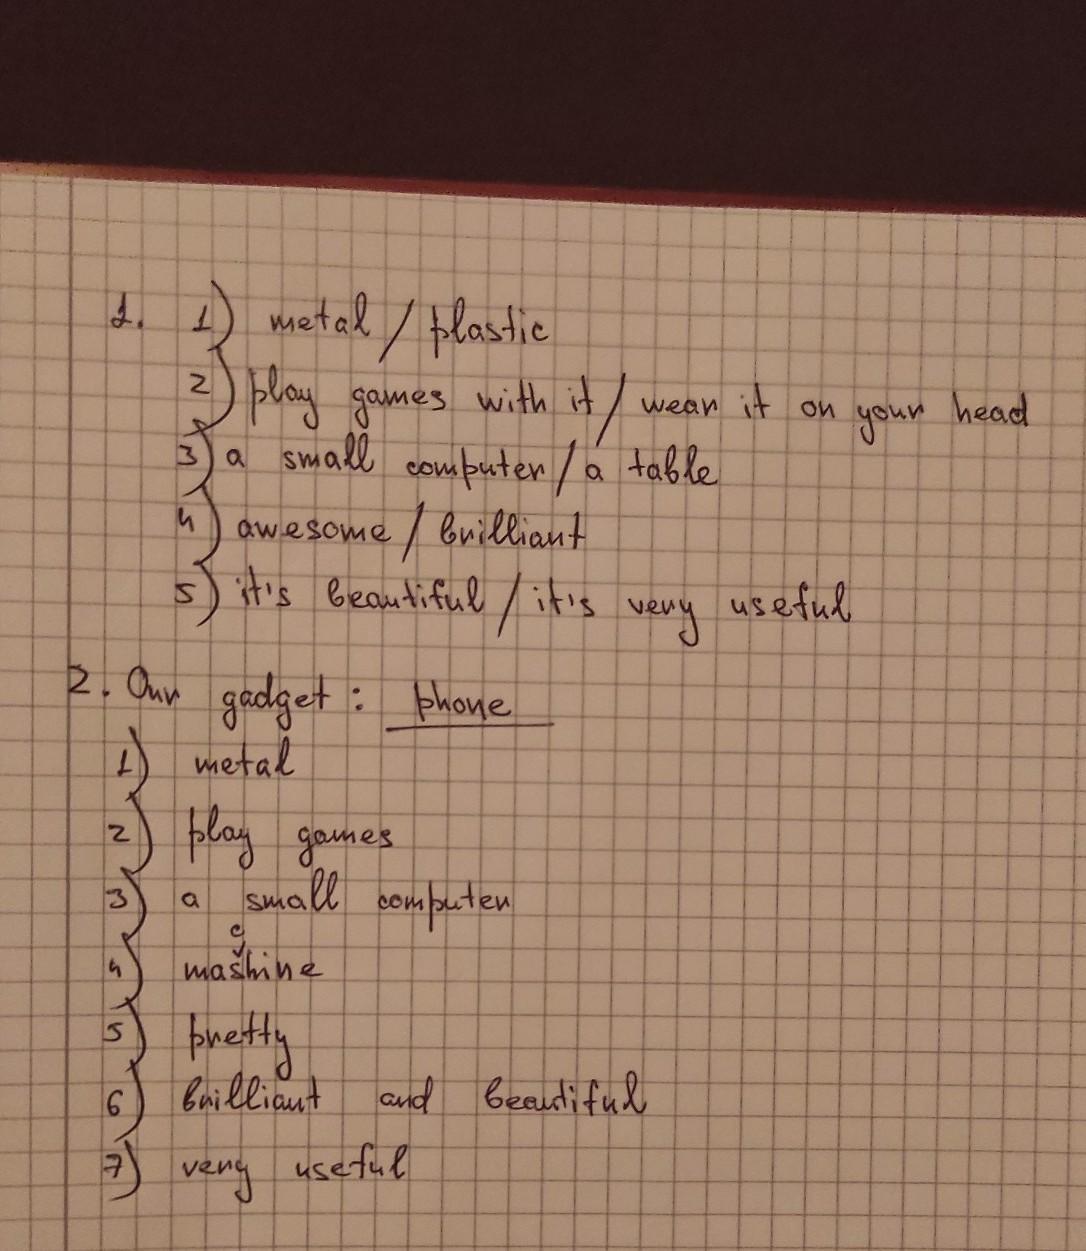 1. 1) metal / plastic
2) play games with it / wear it on your head
3) a small computer / a table
4) awesome / brilliant
5) it's beautiful / it's very useful
2. Our gadget: phone
1) metal
2) play games
3) a small computer
c
4) mashine
5) pretty
6) brilliant and beautiful
7) very useful